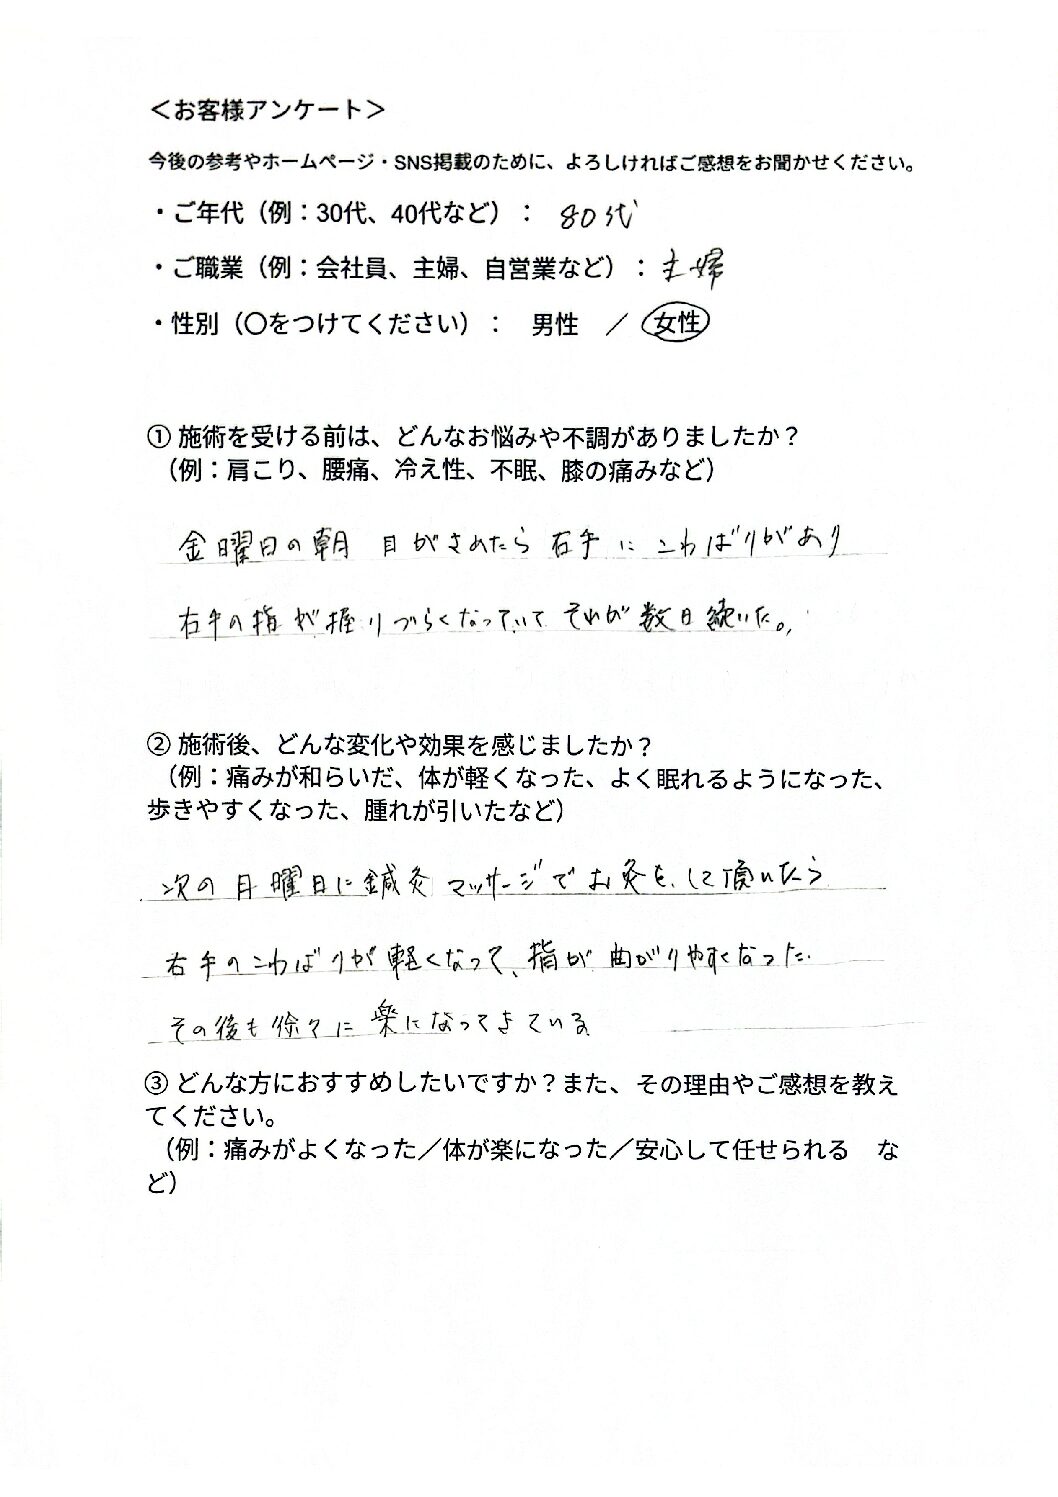 ＜お客様アンケート＞
今後の参考やホームページ・SNS掲載のために、よろしければご感想をお聞かせください。
・ご年代（例：30代、40代など）： 80代
・ご職業（例：会社員、主婦、自営業など）：主婦
・性別（〇をつけてください）： 男性 ／ 女性
① 施術を受ける前は、どんなお悩みや不調がありましたか？
（例：肩こり、腰痛、冷え性、不眠、膝の痛みなど）
金曜日の朝 目がさめたら右手にこわばりがあり
右手の指が握りづらくなっていてそれが数日続いた。
② 施術後、どんな変化や効果を感じましたか？
（例：痛みが和らいだ、体が軽くなった、よく眠れるようになった、
歩きやすくなった、腫れが引いたなど）
次の月曜日に鍼灸マッサージでお灸をして頂いたら
右手のこわばりが軽くなって、指が曲がりやすくなった
その後も徐々に楽になってきている
③ どんな方におすすめしたいですか？また、その理由やご感想を教え
てください。
（例：痛みがよくなった／体が楽になった／安心して任せられる な
ど）